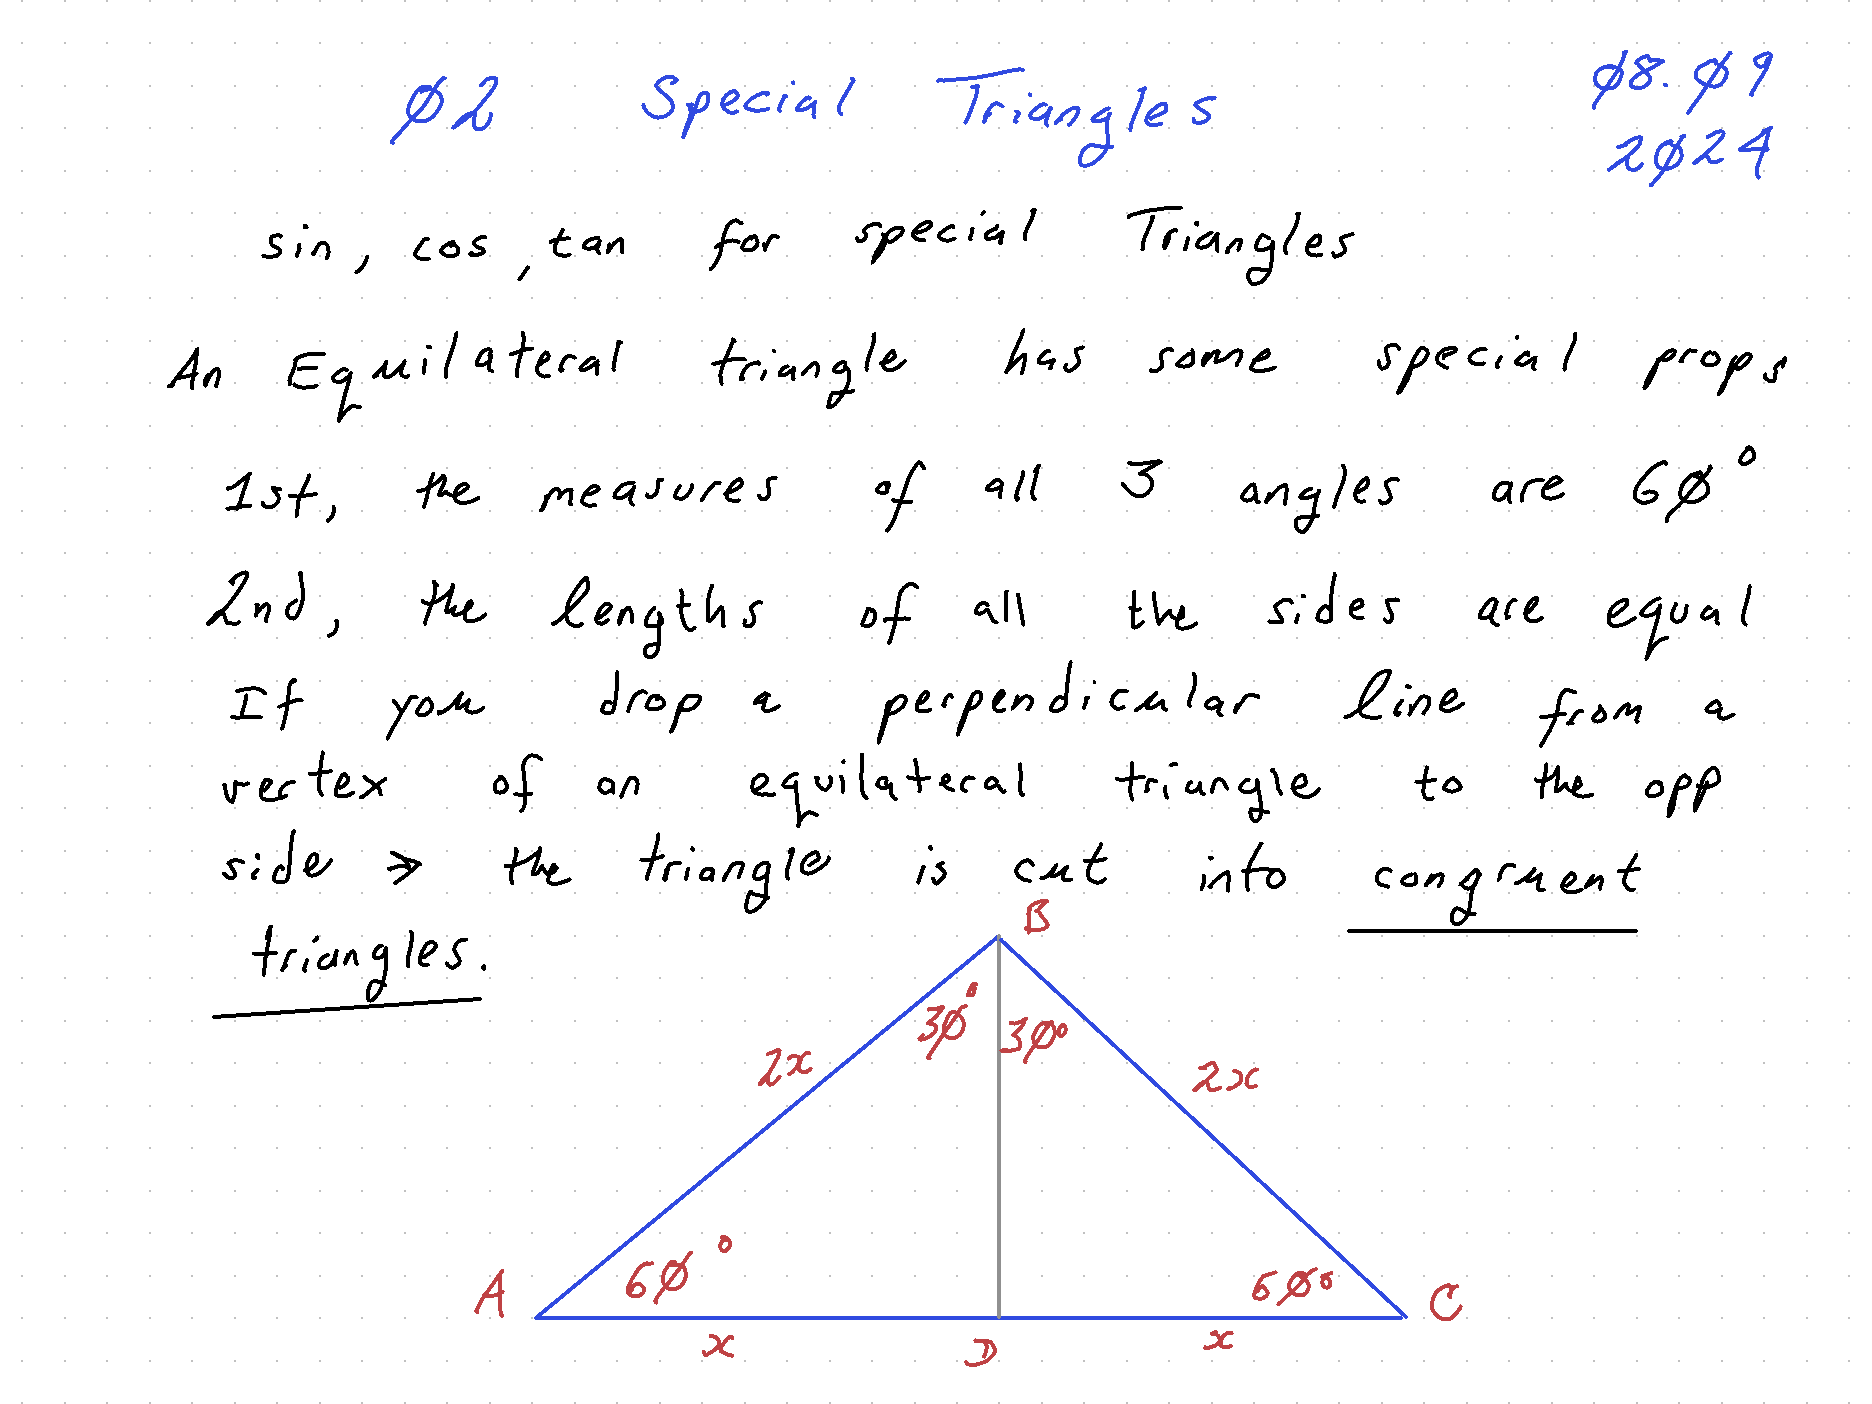 02 Special Triangles
08.09
2024
sin, cos, tan for special Triangles
An Equilateral triangle has some special props
1st, the measures of all 3 angles are 60°
2nd, the lengths of all the sides are equal
If you drop a perpendicular line from a
vertex of an equilateral triangle to the opp
side → the triangle is cut into congruent
triangles.
B
30° 30°
2x 2x
A 60° 60° C
x D x